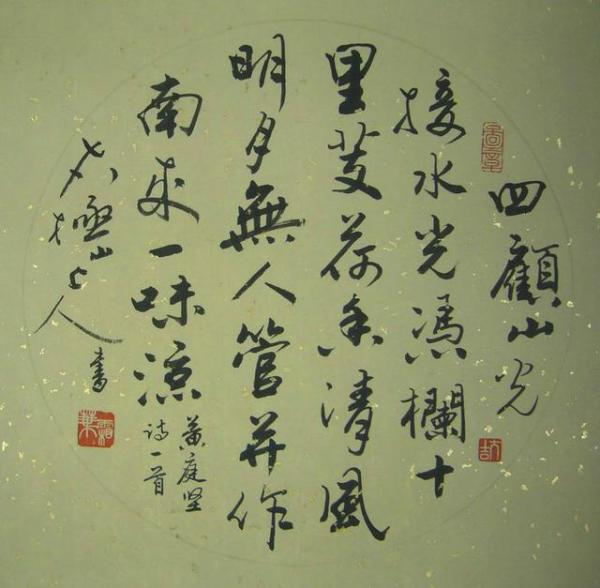 四顧山光
接水光馮欄十
里芰荷香清風
明月無人管并作
南來一味涼
黃庭坚
诗一首
山人書